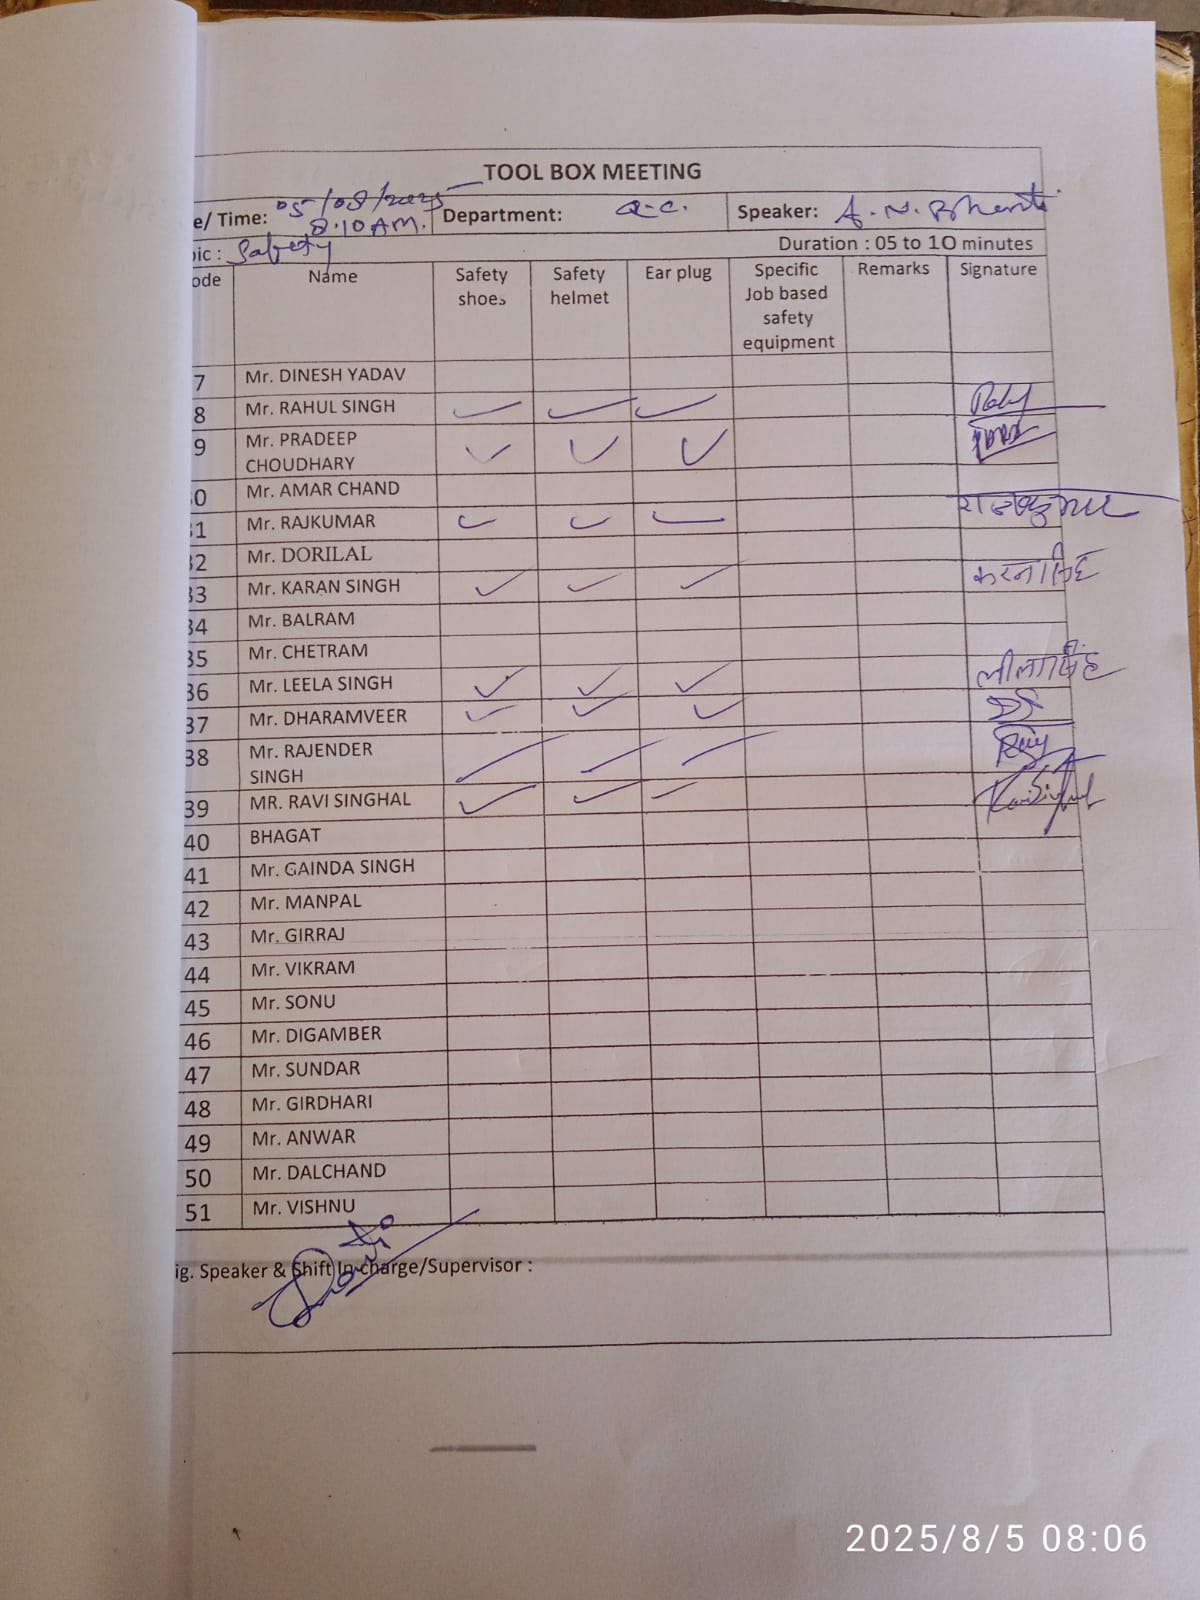 TOOL BOX MEETING
e/ Time: 05/08/2025 8:10 AM. Department: Q.C. Speaker: A. N. Bharti
ic : Safety Duration : 05 to 10 minutes
ode Name Safety shoes Safety helmet Ear plug Specific Job based safety equipment Remarks Signature
7 Mr. DINESH YADAV
8 Mr. RAHUL SINGH
9 Mr. PRADEEP
CHOUDHARY
0 Mr. AMAR CHAND
31 Mr. RAJKUMAR राजकुमार
32 Mr. DORILAL
33 Mr. KARAN SINGH करनसिंह
34 Mr. BALRAM
35 Mr. CHETRAM
36 Mr. LEELA SINGH लीलासिंह
37 Mr. DHARAMVEER
38 Mr. RAJENDER
SINGH
39 MR. RAVI SINGHAL
40 BHAGAT
41 Mr. GAINDA SINGH
42 Mr. MANPAL
43 Mr. GIRRAJ
44 Mr. VIKRAM
45 Mr. SONU
46 Mr. DIGAMBER
47 Mr. SUNDAR
48 Mr. GIRDHARI
49 Mr. ANWAR
50 Mr. DALCHAND
51 Mr. VISHNU
ig. Speaker & Shift In charge/Supervisor :
2025/8/5 08:06